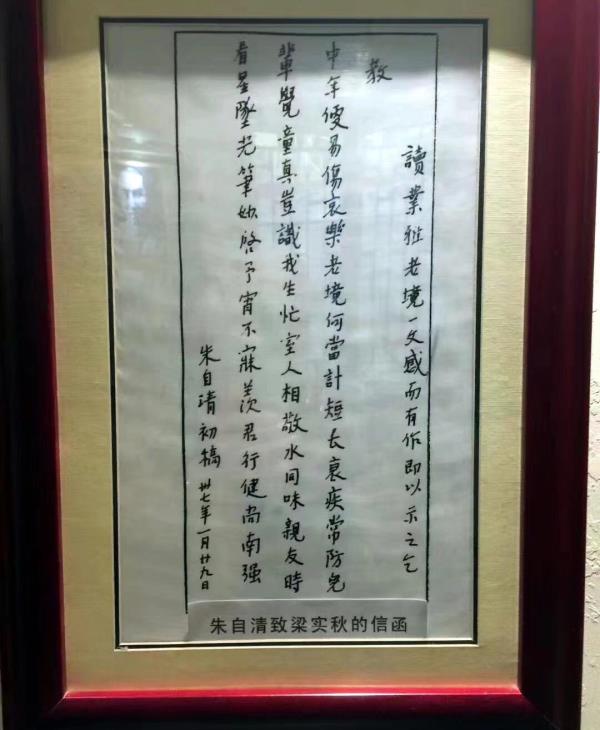 讀業雅老境一文感而有作即以示之乞
教
中年便易傷哀樂老境何當計短長衰疾常防兒
輩覺童真豈識我生忙室人相敬水同味親友時
看星墜光筆妙啓予宵不寐羨君行健尚南强
朱自清初稿 卅七年一月廿九日
朱自清致梁实秋的信函